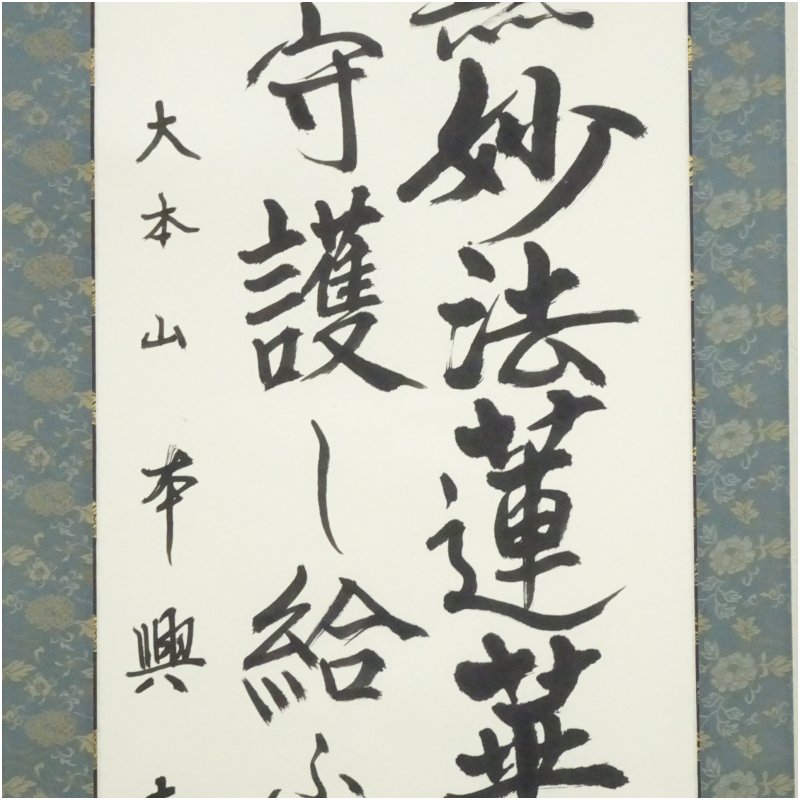 無妙法蓮華
守護し給ふ
大本山本興